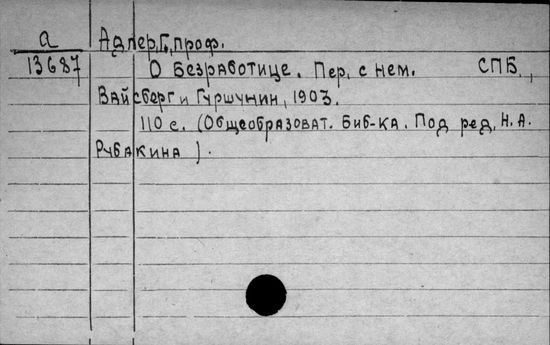 а Адлер, Г., проф.
13687 О безработице. Пер. с нем. СПБ.,
Вайсберг и Гуршунин, 1903.
110 с. (Общеобразоват. биб-ка. Под ред. Н.А.
Рубакина).